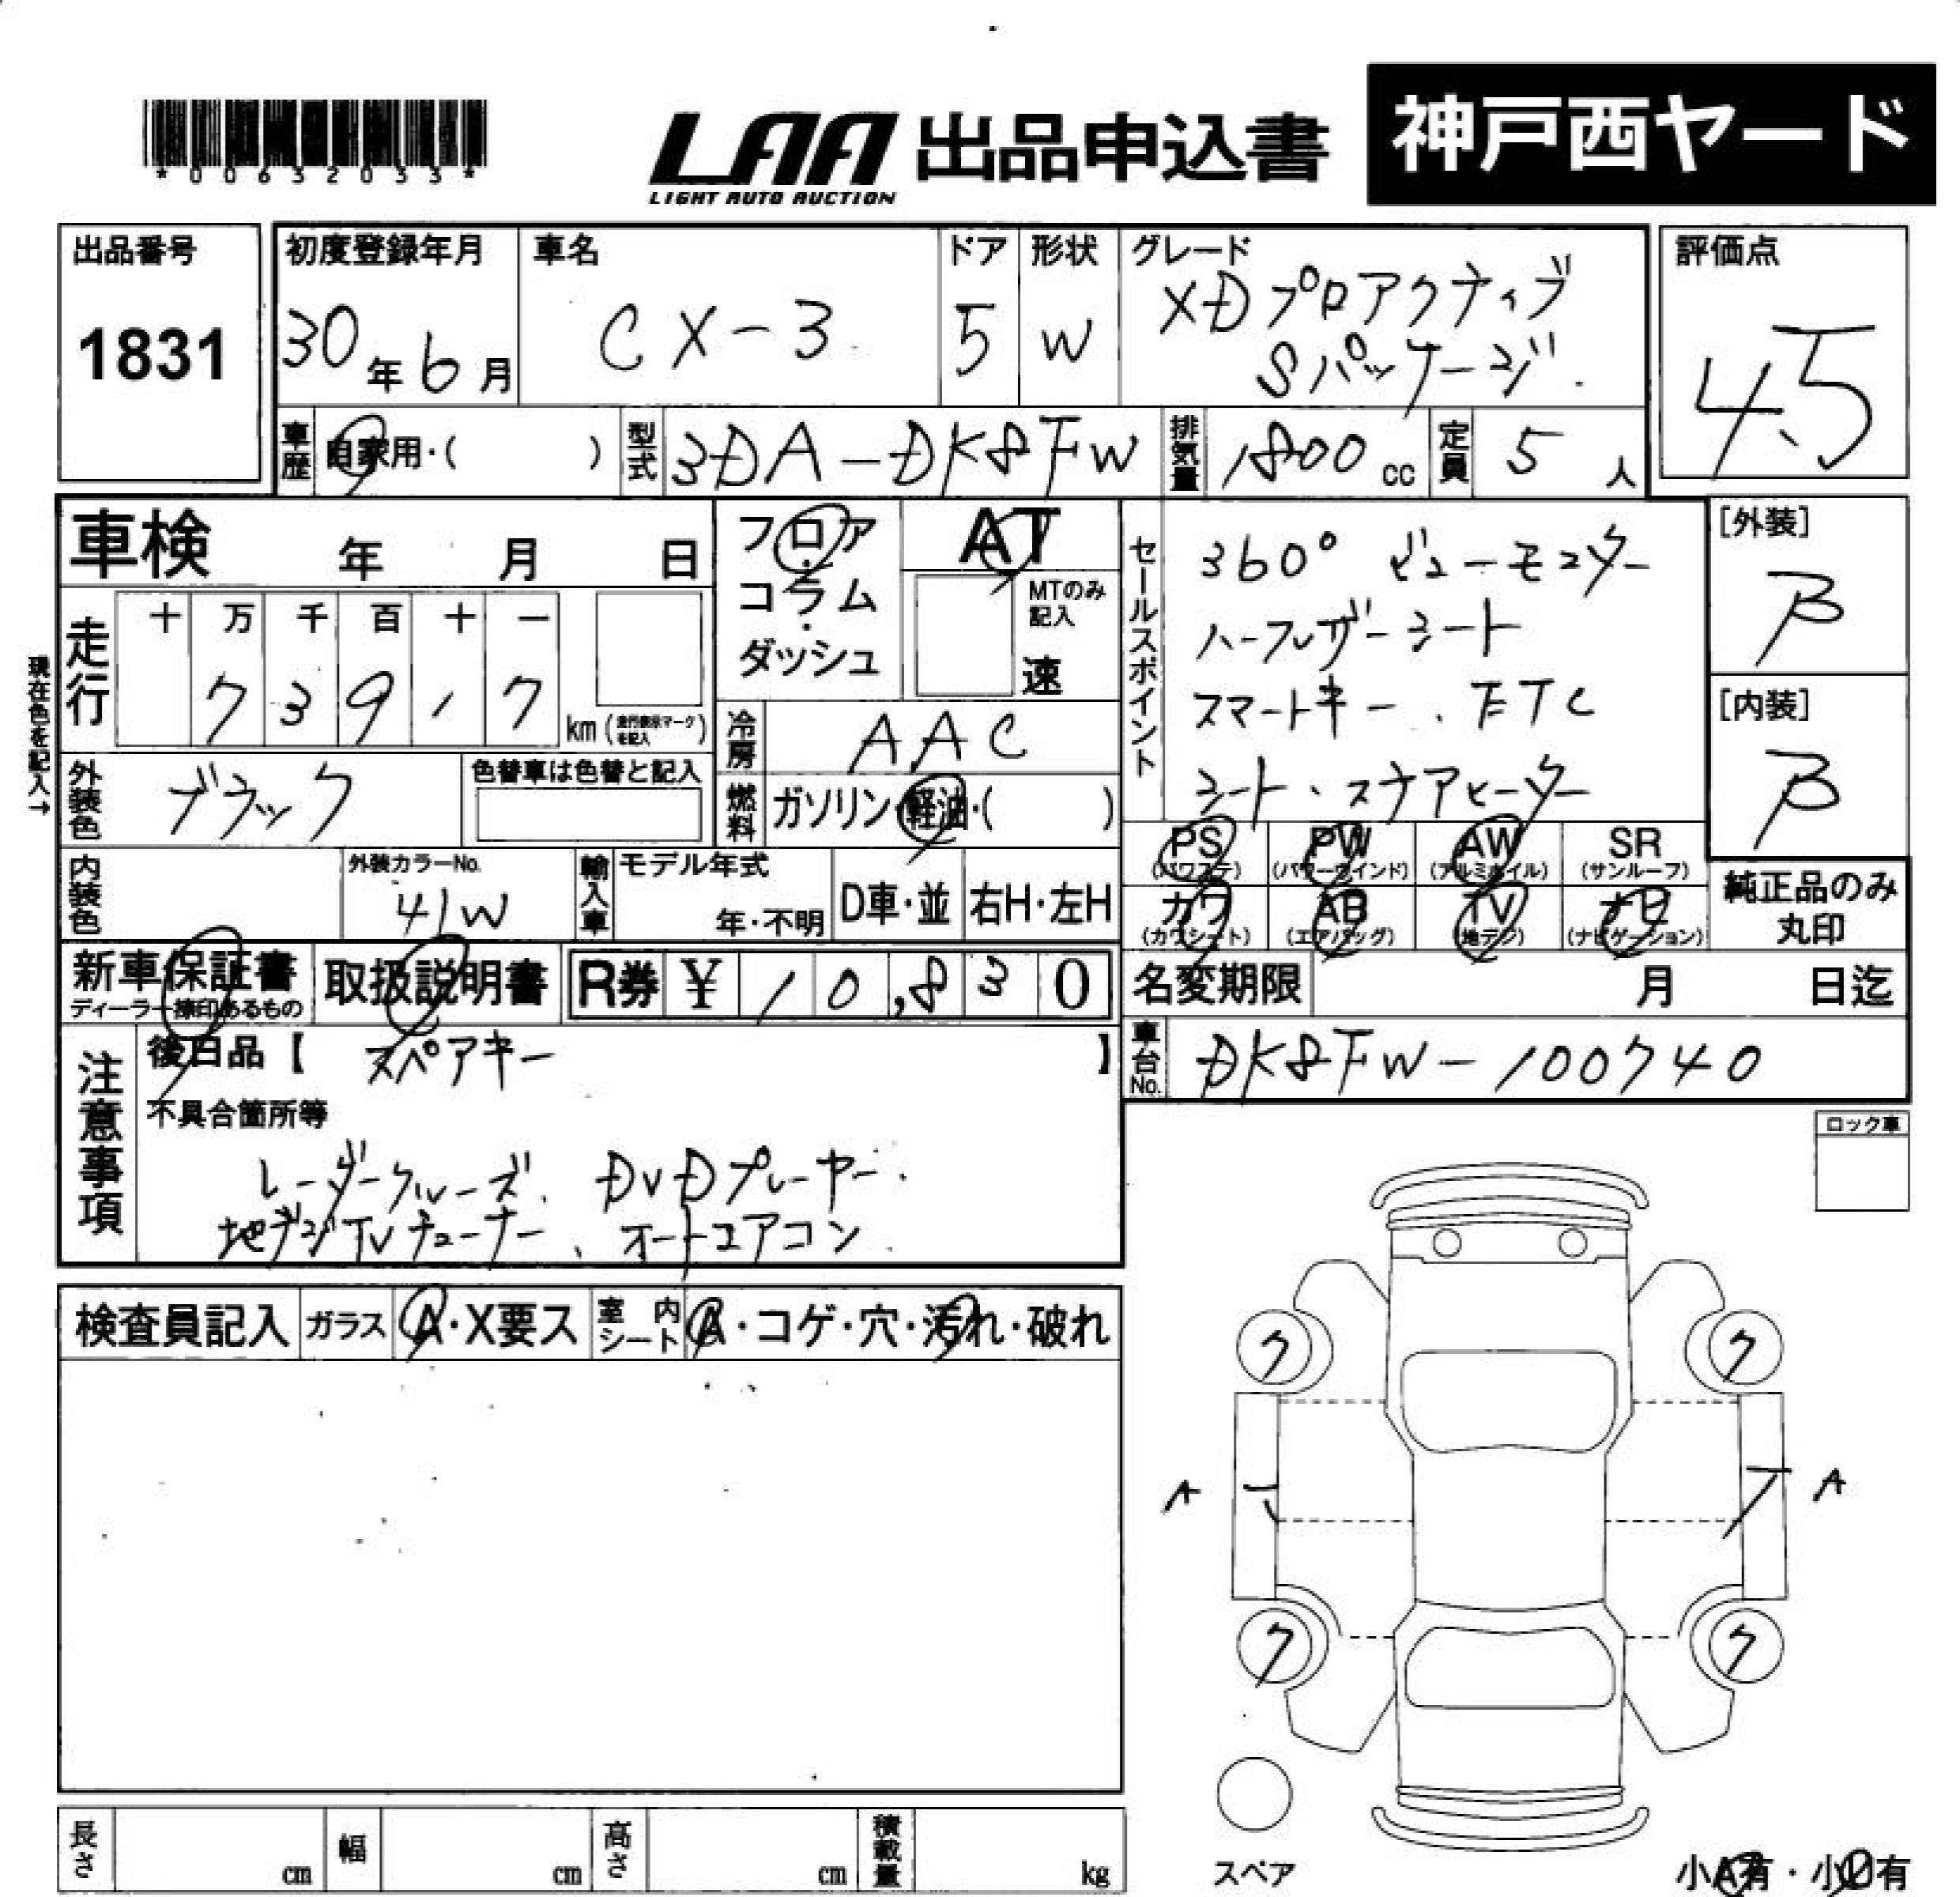 *00632033*
LAA 出品申込書
LIGHT AUTO AUCTION
神戸西ヤード
出品番号
1831
初度登録年月
30年6月
車名
CX-3
ドア
5
形状
W
グレード
XDプロアクティブ
Sパッケージ.
評価点
4.5
車歴
自家用・( )
型式
3DA-DK8FW
排気量
1800 cc
定員
5 人
車検 年 月 日
フロア
・
コラム
・
ダッシュ
AT
MTのみ
記入
速
セールスポイント
360° ビューモニター
ハーフレザーシート
スマートキー、ETC
シート、ステアヒーター
[外装]
B
[内装]
B
現在色を記入→
走行
十 万 千 百 十 一
7 3 9 1 7
km (走行表示マークを記入)
冷房
AAC
外装色
ブラック
色替車は色替と記入
燃料
ガソリン・軽油・( )
PS
(パワステ)
PW
(パワーウインド)
AW
(アルミホイル)
SR
(サンルーフ)
カワ
(カワシート)
AB
(エアバッグ)
TV
(地デジ)
ナビ
(ナビゲーション)
純正品のみ
丸印
内装色
外装カラーNo.
41W
輸入車
モデル年式
年・不明
D車・並
右H・左H
新車保証書
ディーラー捺印あるもの
取扱説明書
R券 ¥ 10,830
名変期限 月 日迄
車台No.
DK8FW-100740
注意事項
後日品【 スペアキー 】
不具合箇所等
レーダークルーズ、DVDプレーヤー.
地デジTVチューナー、オートエアコン.
ロック車
検査員記入
ガラス
A・X要ス
室内シート
A・コゲ・穴・汚れ・破れ
ク ク
A A
ク ク
スペア
小A有・小U有
長さ cm
幅 cm
高さ cm
積載量 kg